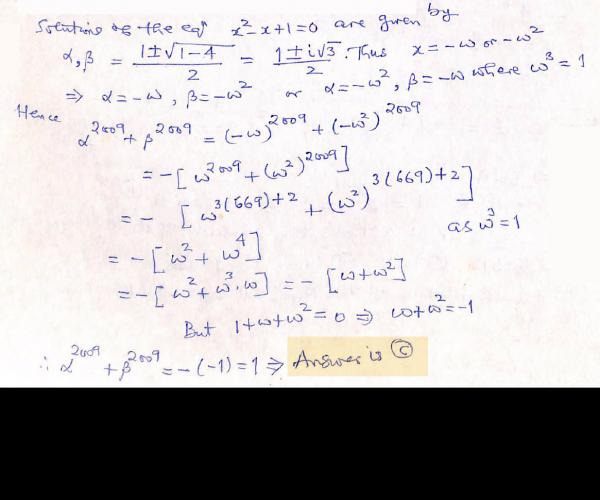 Solutions of the eqn x²-x+1=0 are given by
α,β = (1±√(1-4))/2 = (1±i√3)/2. Thus x=-ω or -ω²
⇒ α=-ω, β=-ω² or α=-ω², β=-ω where ω³=1
Hence α²⁰⁰⁹+β²⁰⁰⁹ = (-ω)²⁰⁰⁹+(-ω²)²⁰⁰⁹
= -[ω²⁰⁰⁹+(ω²)²⁰⁰⁹]
= - [ω³⁽⁶⁶⁹⁾⁺²+(ω²)³⁽⁶⁶⁹⁾⁺²]
= -[ω²+ω⁴] as ω³=1
= -[ω²+ω³.ω] = -[ω+ω²]
But 1+ω+ω²=0 ⇒ ω+ω²=-1
∴ α²⁰⁰⁹+β²⁰⁰⁹=-(-1)=1 ⇒ Answer is Ⓒ